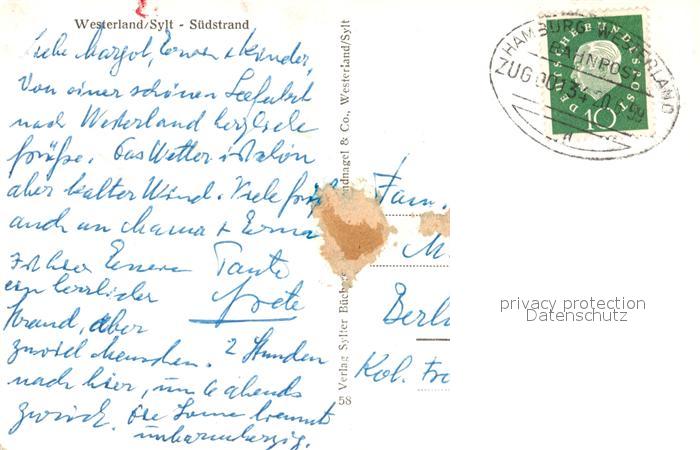 Westerland/Sylt - Südstrand
Liebe Margot, Erwin + Kinder,
Von einer schönen Seefahrt
nach Westerland herzliche
Grüße. Das Wetter ist schön
aber kalter Wind. Viele Grüße
auch an Mama + Erna
Eurer Tante
Grete
ein herrlicher
Strand, aber
zuviel Menschen. 2 Stunden
nach hier, um 6 abends
zurück. Die Sonne brennt
unbarmherzig.
58
Verlag Sylter Bücher
ndnagel & Co., Westerland/Sylt
HAMBURG WESTERLAND
BAHNPOST
ZUG 00134 20. 59
DEUTSCHE BUNDESPOST
10
Fam.
M
Berl
Kol. Fr
privacy protection
Datenschutz